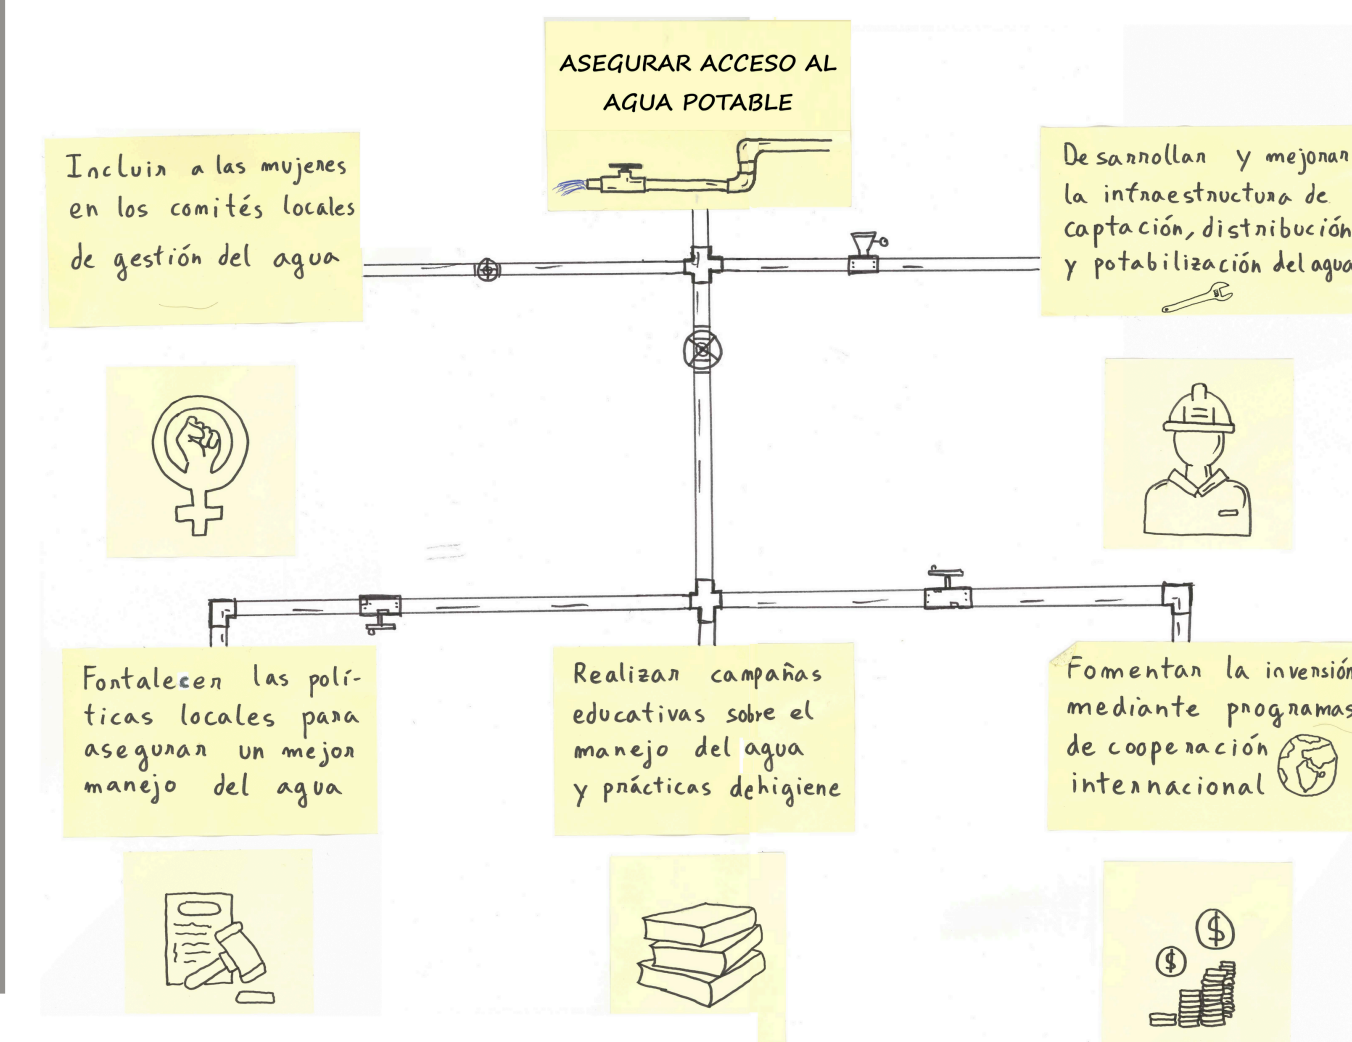 ASEGURAR ACCESO AL
AGUA POTABLE
Incluir a las mujeres
en los comités locales
de gestión del agua
Desarrollar y mejorar
la infraestructura de
captación, distribución
y potabilización del agua
Fortalecer las polí-
ticas locales para
asegurar un mejor
manejo del agua
Realizar campañas
educativas sobre el
manejo del agua
y prácticas de higiene
Fomentar la inversión
mediante programas
de cooperación
internacional
$
$